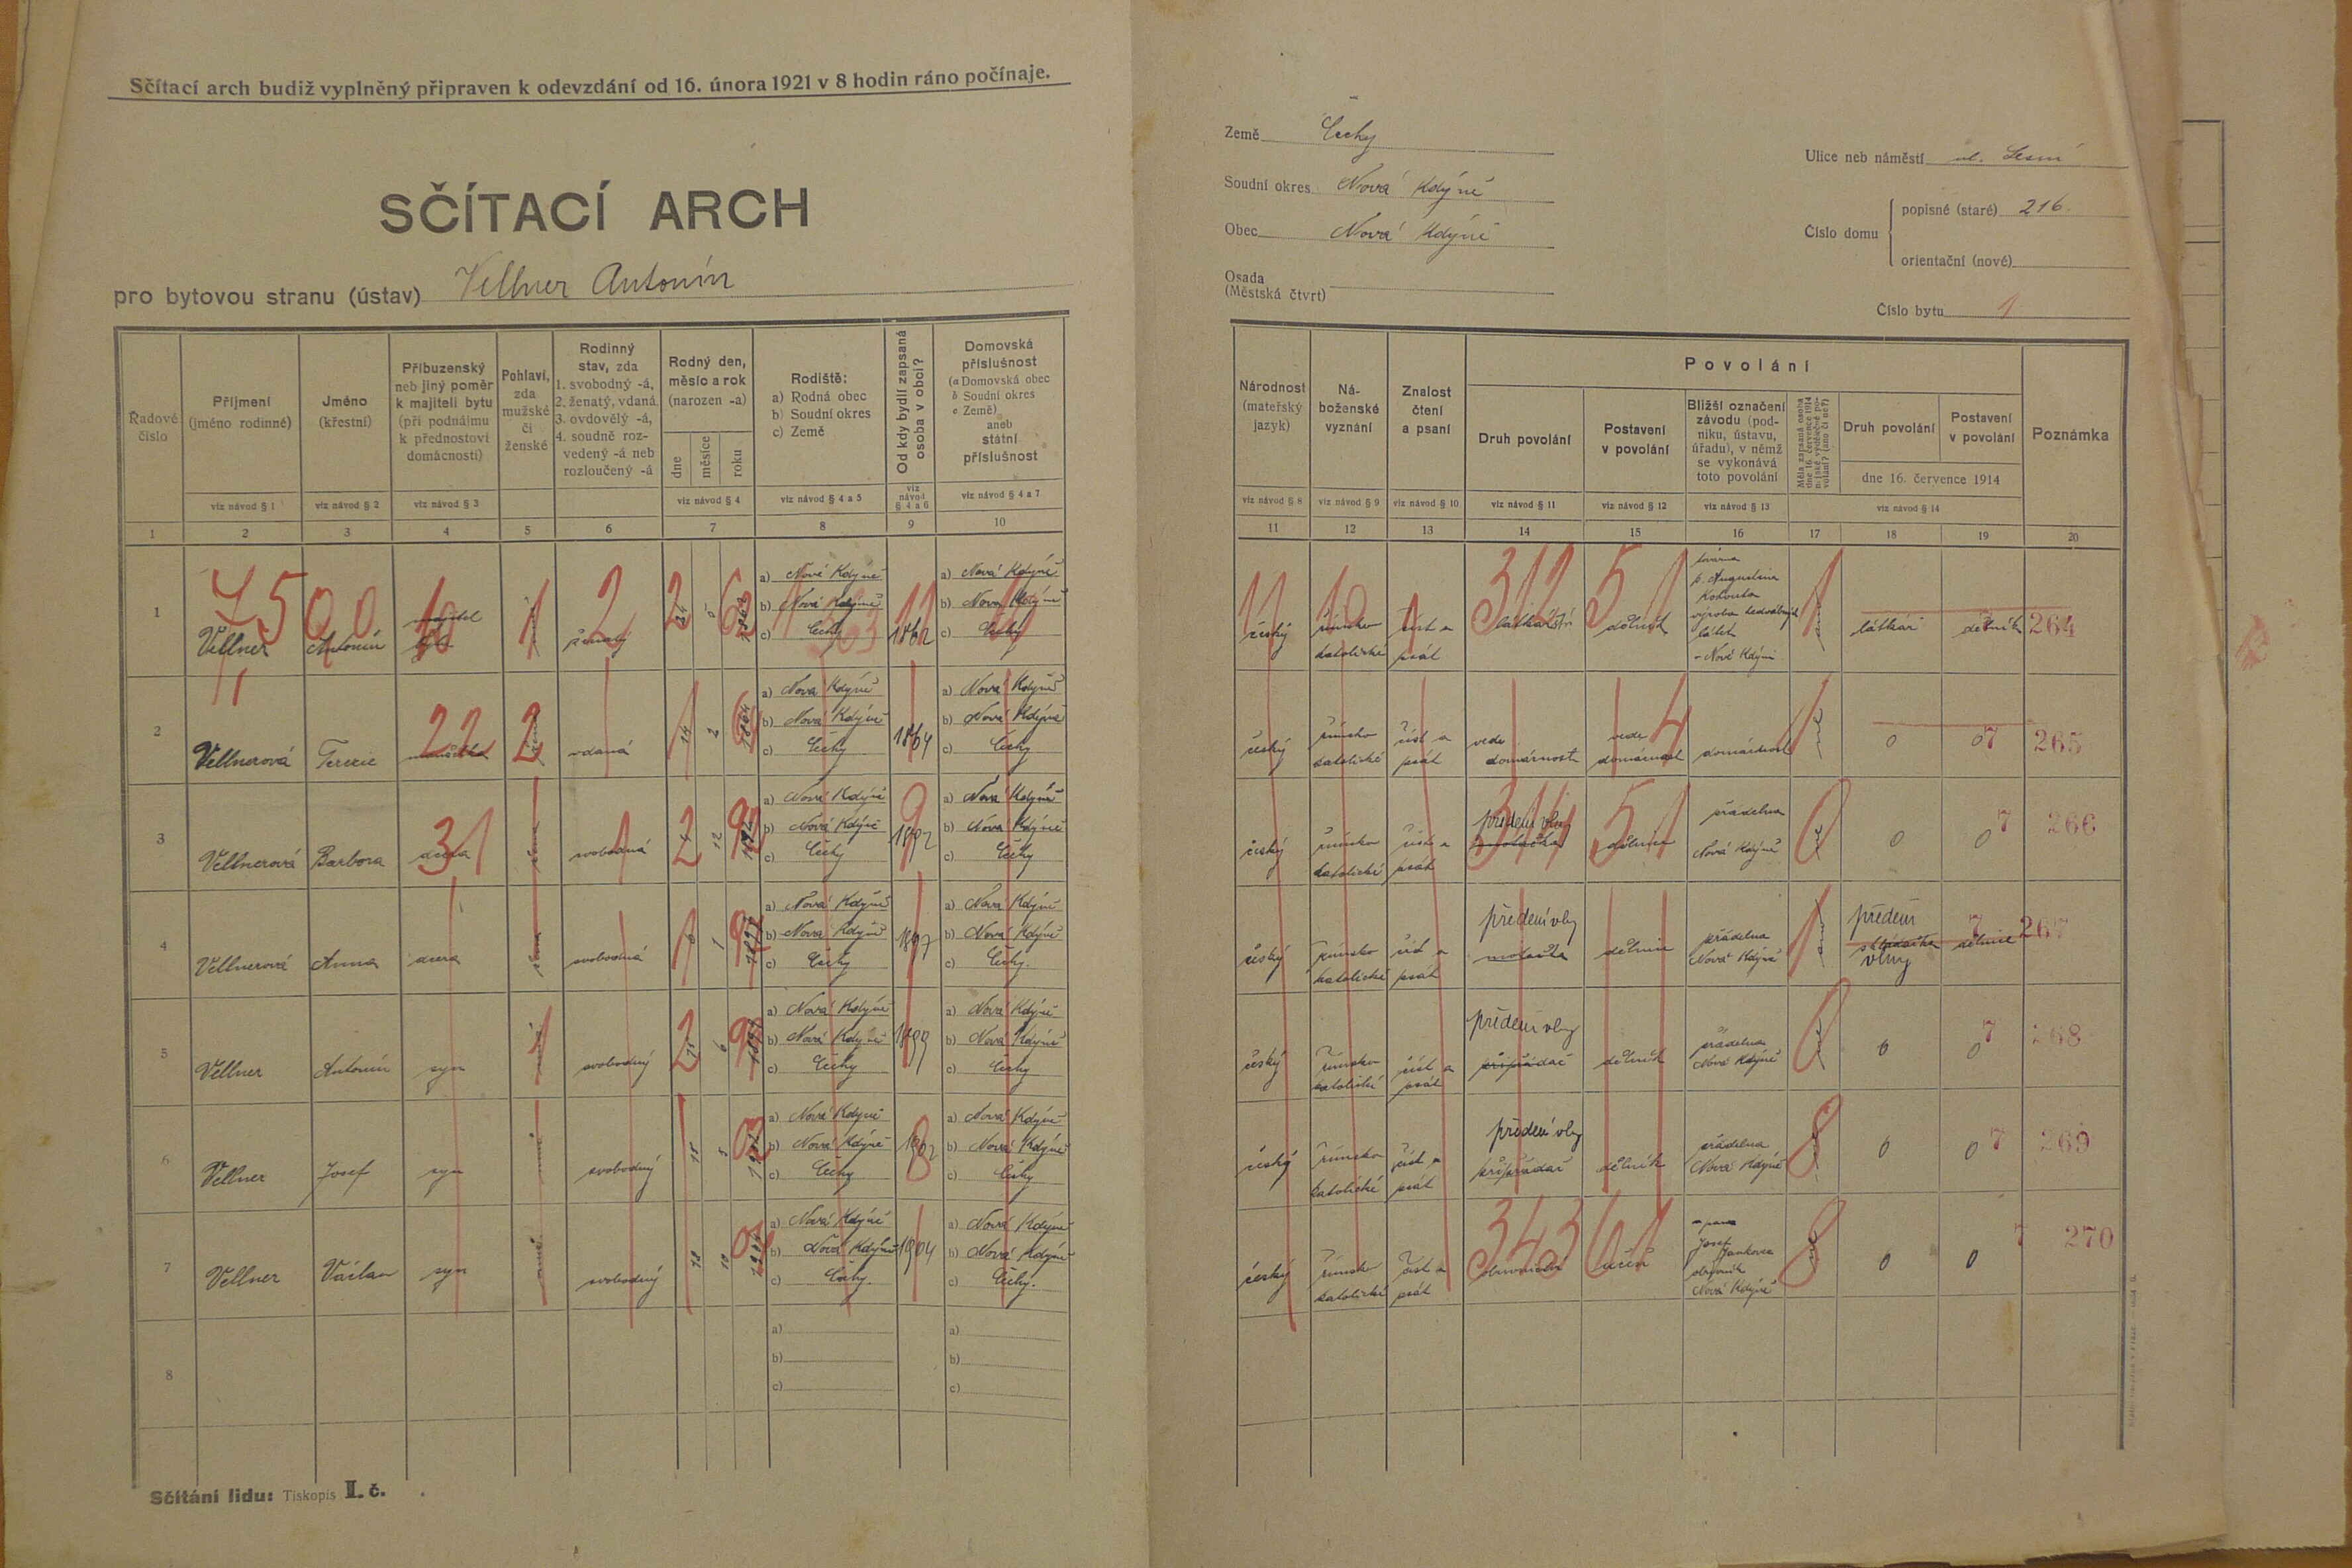 Sčítací arch budiž vyplněný připraven k odevzdání od 16. února 1921 v 8 hodin ráno počínaje.
SČÍTACÍ ARCH
pro bytovou stranu (ústav) Vellner Antonín
Řadové číslo
Příjmení (jméno rodinné)
viz návod § 1
Jméno (křestní)
viz návod § 2
Příbuzenský neb jiný poměr k majiteli bytu (při podnájmu k přednostovi domácnosti)
viz návod § 3
Pohlaví, zda mužské či ženské
Rodinný stav, zda 1. svobodný -á, 2. ženatý, vdaná 3. ovdovělý -á, 4. soudně rozvedený -á neb rozloučený -á
Rodný den, měsíc a rok (narozen -a)
dne měsíce roku
viz návod § 4
Rodiště: a) Rodná obec b) Soudní okres c) Země
viz návod § 4 a 5
Od kdy bydlí zapsaná osoba v obci?
viz návod § 4 a 6
Domovská příslušnost (a Domovská obec b Soudní okres c Země) aneb státní příslušnost
viz návod § 4 a 7
1 2 3 4 5 6 7 8 9 10
1 Vellner Antonín majitel bytu ženatý 5 1862 a) Nová Kdyně b) Nová Kdyně c) Čechy 1862 a) Nová Kdyně b) Nová Kdyně c) Čechy
2 Vellnerová Terezie manželka vdaná 14 2 1864 a) Nová Kdyně b) Nová Kdyně c) Čechy 1864 a) Nová Kdyně b) Nová Kdyně c) Čechy
3 Vellnerová Barbora dcera svobodná 12 1892 a) Nová Kdyně b) Nová Kdyně c) Čechy 1892 a) Nová Kdyně b) Nová Kdyně c) Čechy
4 Vellnerová Anna dcera svobodná 1 1897 a) Nová Kdyně b) Nová Kdyně c) Čechy 1897 a) Nová Kdyně b) Nová Kdyně c) Čechy
5 Vellner Antonín syn svobodný 6 1899 a) Nová Kdyně b) Nová Kdyně c) Čechy 1899 a) Nová Kdyně b) Nová Kdyně c) Čechy
6 Vellner Josef syn svobodný a) Nová Kdyně b) Nová Kdyně c) Čechy 1902 a) Nová Kdyně b) Nová Kdyně c) Čechy
7 Vellner Václav syn svobodný 18 10 1904 a) Nová Kdyně b) Nová Kdyně c) Čechy. 1904 a) Nová Kdyně b) Nová Kdyně c) Čechy.
8 a) b) c) a) b) c)
Sčítání lidu: Tiskopis II. č.
Země Čechy
Soudní okres Nová Kdyně
Obec Nová Kdyně
Osada (Městská čtvrt)
Ulice neb náměstí ul. Lesní
Číslo domu
popisné (staré) 216.
orientační (nové)
Číslo bytu 1
Národnost (mateřský jazyk)
viz návod § 8
Náboženské vyznání
viz návod § 9
Znalost čtení a psaní
viz návod § 10
Povolání
Druh povolání
viz návod § 11
Postavení v povolání
viz návod § 12
Bližší označení závodu (podniku, ústavu, úřadu), v němž se vykonává toto povolání
viz návod § 13
Měla zapsaná osoba dne 16. července 1914 nějaké výdělečné povolání? (ano či ne?)
Druh povolání
Postavení v povolání
dne 16. července 1914
viz návod § 14
Poznámka
11 12 13 14 15 16 17 18 19 20
český římsko katolické číst a psát látkařství dělník továrna p. Augustina Kohouta výroba hedvábných látek Nové Kdyni látkař dělník 264
český římsko katolické číst a psát vede domácnost vede domácnost domácnost 0 0 7 265
český římsko katolické číst a psát předení vlny dělnice přádelna Nová Kdyně 0 0 7 266
český římsko katolické číst a psát předení vlny motačka dělnice přádelna Nová Kdyně předení vlny dělnice 7 267
český římsko katolické číst a psát předení vlny připřadač dělník přádelna Nová Kdyně 0 0 7 268
český římsko katolické číst a psát předení vlny připřadač dělník přádelna Nová Kdyně 0 0 7 269
český římsko katolické číst a psát 343 61 učeň Josef Jankovec obuvník Nová Kdyně 0 0 7 270